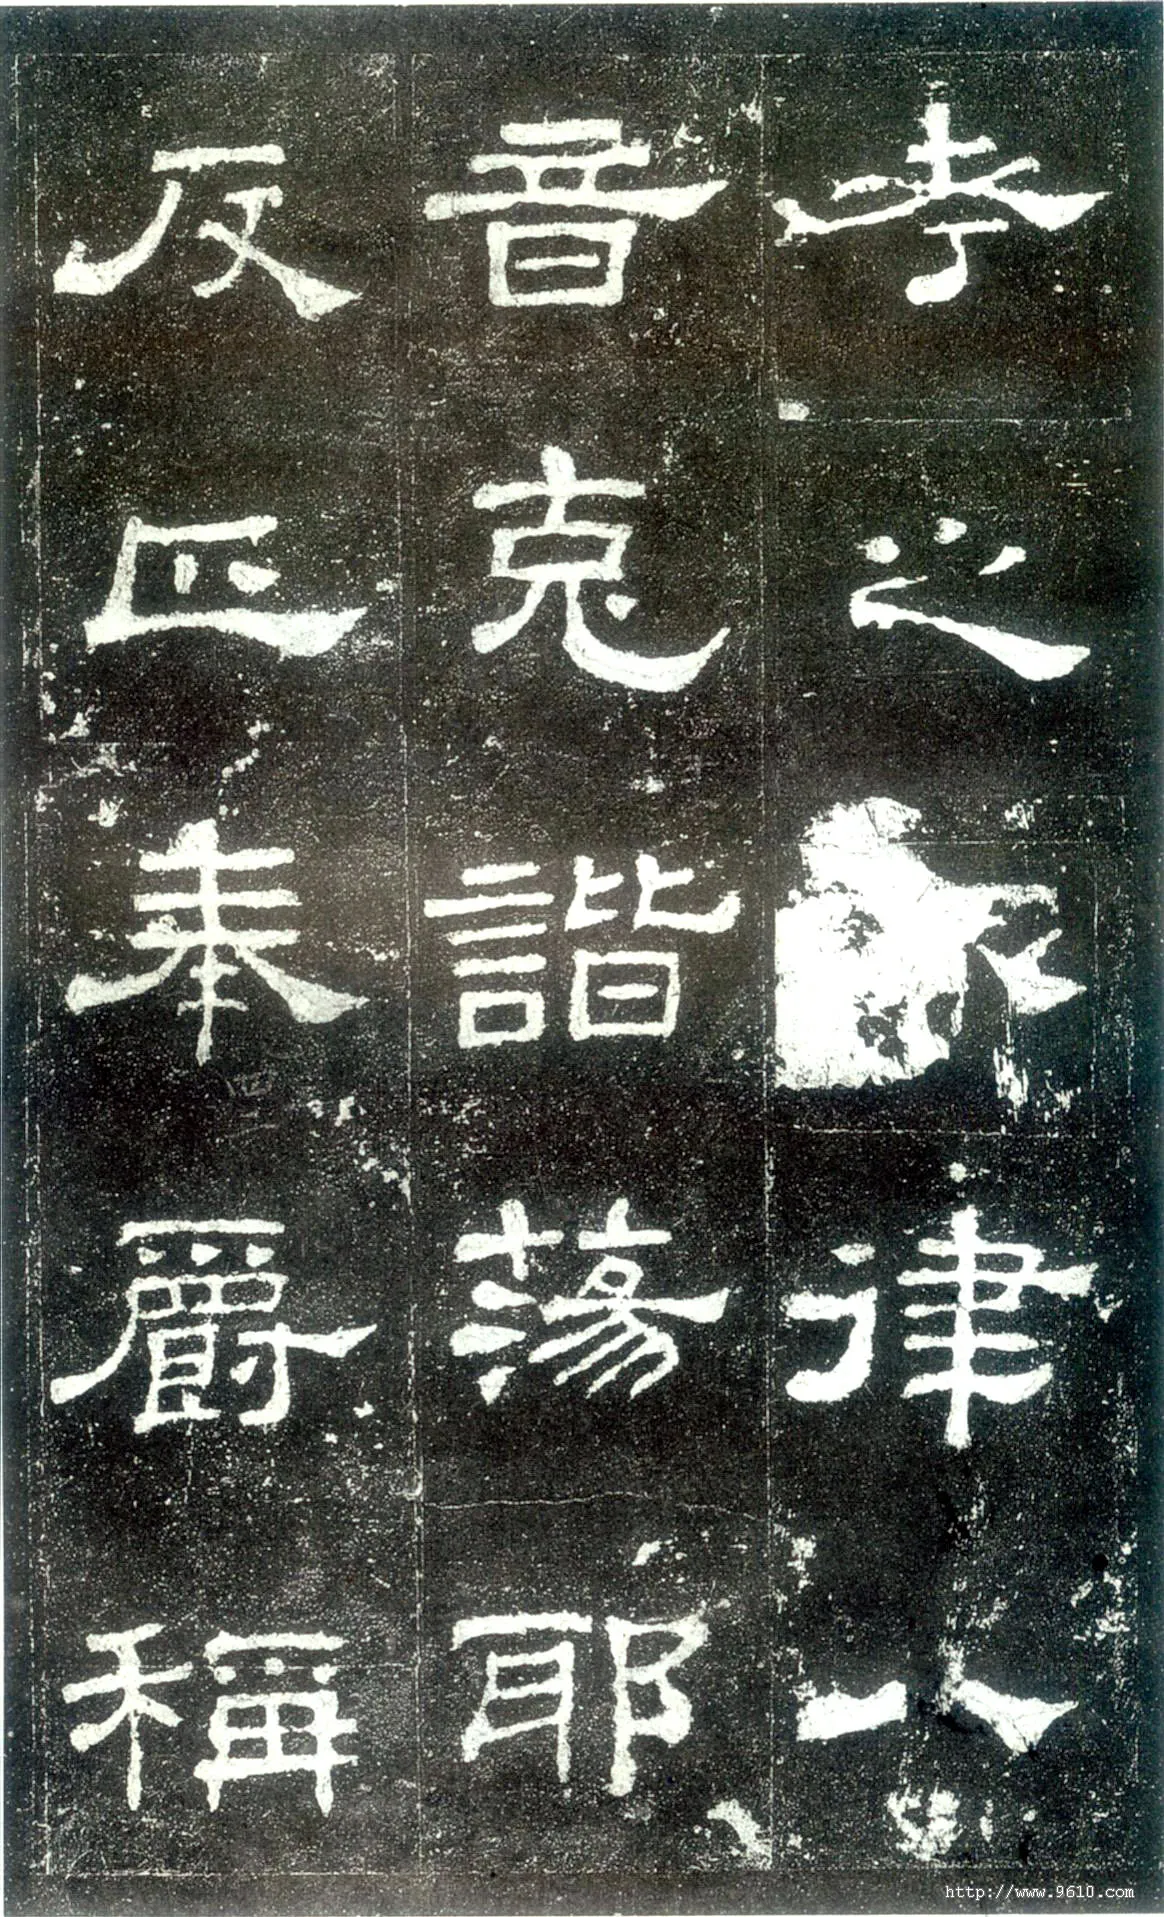 考之律八
音克諧蕩耶
反正奉爵稱
http://www.9610.com